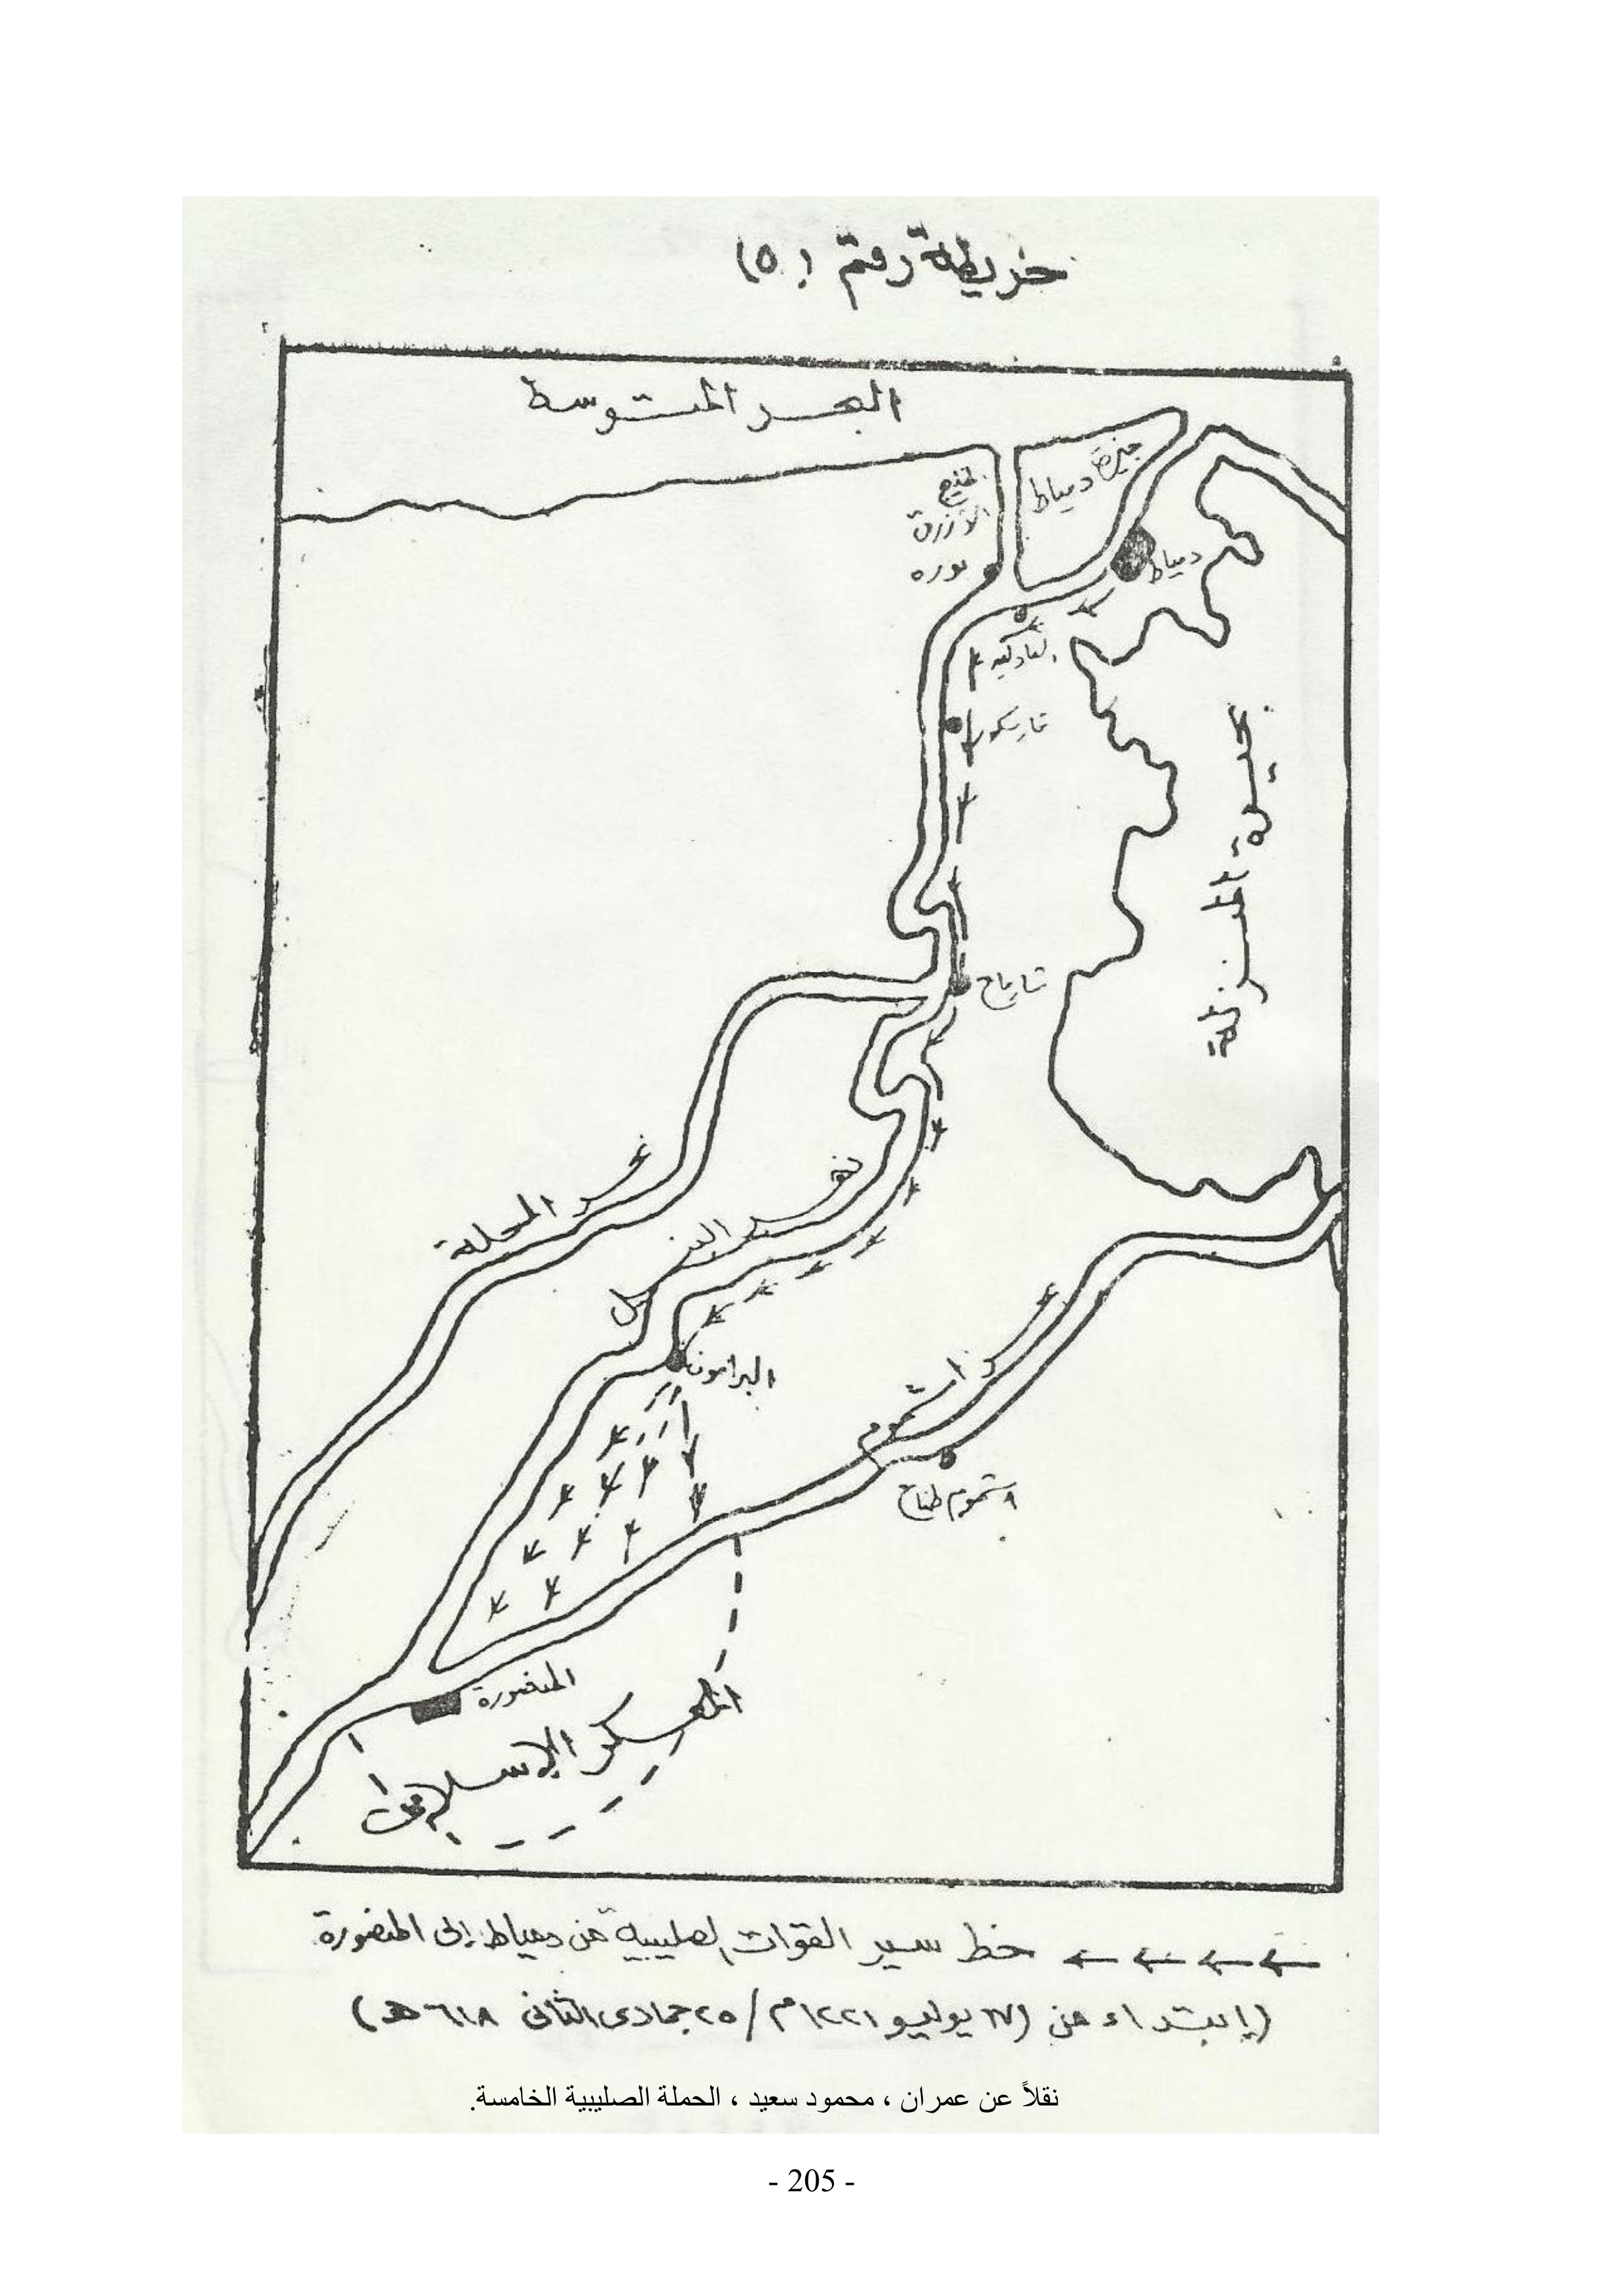 خريطة رقم (٥)
البحر المتوسط
جزيرة دمياط
الأزرق
بوره
دمياط
العادلية
فارسكور
بحيرة المنزلة
شارمساح
بحر المحلة
نهر النيل
البرامون
بحر اشموم
اشموم طناح
المنصورة
المعسكر الإسلامى
خط سير القوات الصليبية من دمياط إلى المنصورة
(إبتداء من (١٧ يوليو ١٢٢١م / ٢٥ جمادى الثانى ٦١٨ هـ)
نقلاً عن عمران ، محمود سعيد ، الحملة الصليبية الخامسة.
- 205 -